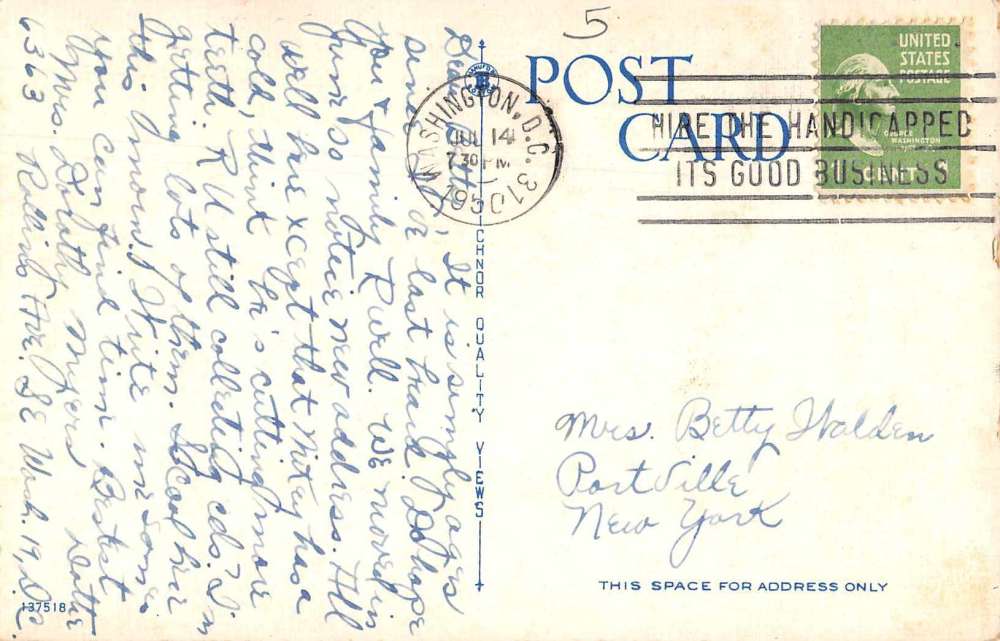 5
POST CARD
UNITED
STATES
POSTAGE
GEORGE
WASHINGTON
CENT
WASHINGTON, D.C. 31
JUL 14
7 30 PM
1950
HIRE THE HANDICAPPED
ITS GOOD BUSINESS
Dear Betty, It is simply ages
since I've last heard. Do hope
you & family R well. We moved in
June so notice new address. All
well here xcept that Mikey has a
cold, think he's cutting more
teeth. R U still collecting cds? I'm
getting lots of them. So cool here
this morn. Write me
you can find time. Bestest
Dottie
Mrs. Dorothy Myers
6363 Rolling Ave. SE Wash. 19, D.C.
CHNOR QUALITY VIEWS
Mrs. Betty Walden
Portville
New York
THIS SPACE FOR ADDRESS ONLY
137518